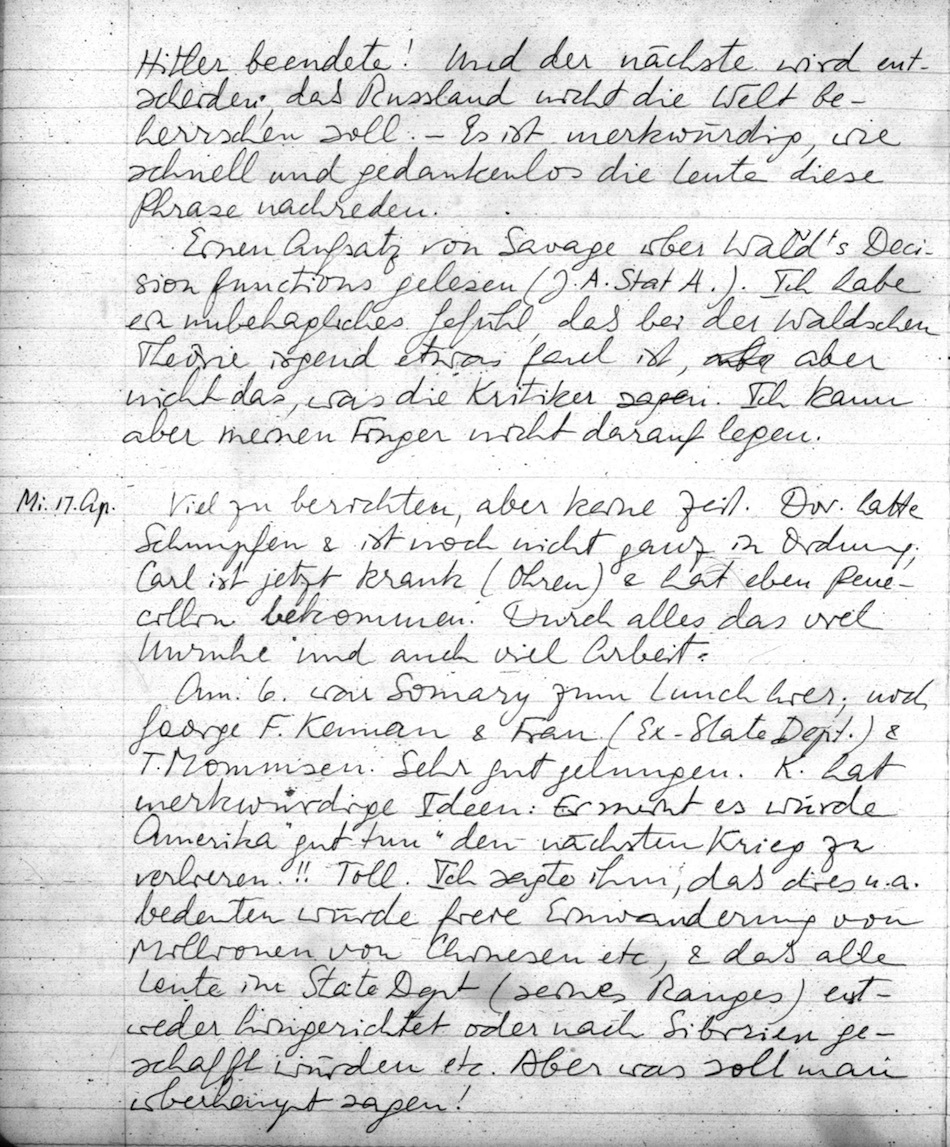 Hitler beendete! Und der nächste wird ent-
scheiden, das Russland nicht die Welt be-
herrschen soll. – Es ist merkwürdig, wie
schnell und gedankenlos die Leute diese
Phrase nachreden.
Einen Aufsatz von Savage über Wald's Deci-
sion functions gelesen (J. A. Stat A.). Ich habe
ein unbehagliches Gefühl, das bei der Waldschen
Theorie irgend etwas faul ist, aber
nicht das, was die Kritiker sagen. Ich kann
aber meinen Finger nicht darauf legen.
Mi. 17. Ap. Viel zu berichten, aber keine Zeit. Dor. hatte
Schnupfen & ist noch nicht ganz in Ordnung,
Carl ist jetzt krank (Ohren) & hat eben Peni-
cillin bekommen. Durch alles das viel
Unruhe und auch viel Arbeit.
Am 6. war Somary zum Lunch hier, und
George F. Kennan & Frau (Ex-State Dept.) &
T. Mommsen. Sehr gut gelungen. K. hat
merkwürdige Ideen: Er meint es würde
Amerika "gut tun" den nächsten Krieg zu
verlieren!! Toll. Ich sagte ihm, das dies u.a.
bedeuten würde freie Einwanderung von
Millionen von Chinesen etc, & das alle
Leute im State Dept (seines Ranges) ent-
weder hingerichtet oder nach Sibirien ge-
schafft würden etc. Aber was soll man
überhaupt sagen!